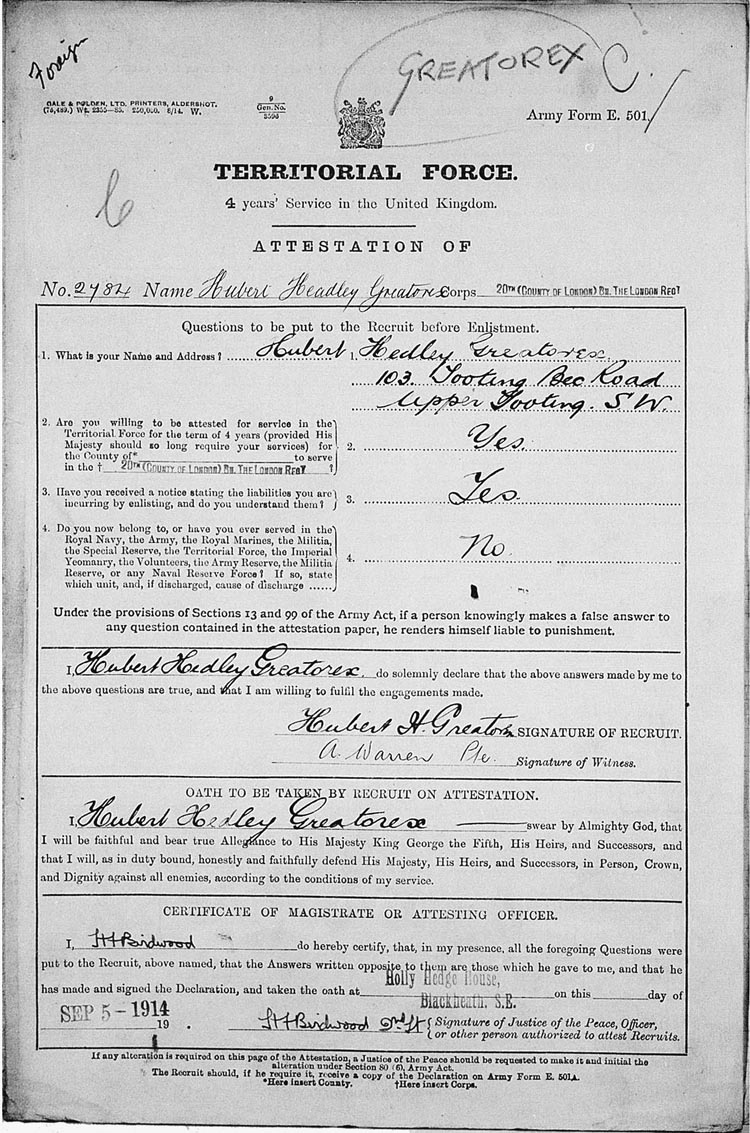 Foreign
GREATOREX C.
GALE & POLDEN, LTD. PRINTERS, ALDERSHOT.
(75,489.) Wt. 2355—85. 250,000. 8/14. W.
9
Gen. No.
3593
Army Form E. 501.
TERRITORIAL FORCE.
4 years' Service in the United Kingdom.
ATTESTATION OF
No. 2784 Name Hubert Headley Greatorex Corps 20TH (COUNTY OF LONDON) BN. THE LONDON REGT
Questions to be put to the Recruit before Enlistment.
1. What is your Name and Address? Hubert 1. Hedley Greatorex
103. Tooting Bec Road
Upper Tooting. S.W.
2. Are you willing to be attested for service in the
Territorial Force for the term of 4 years (provided His
Majesty should so long require your services) for
the County of* to serve
in the † 20TH (COUNTY OF LONDON) BN. THE LONDON REGT ?
2. Yes.
3. Have you received a notice stating the liabilities you are
incurring by enlisting, and do you understand them?
3. Yes
4. Do you now belong to, or have you ever served in the
Royal Navy, the Army, the Royal Marines, the Militia,
the Special Reserve, the Territorial Force, the Imperial
Yeomanry, the Volunteers, the Army Reserve, the Militia
Reserve, or any Naval Reserve Force? If so, state
which unit, and, if discharged, cause of discharge ......
4. No.
Under the provisions of Sections 13 and 99 of the Army Act, if a person knowingly makes a false answer to
any question contained in the attestation paper, he renders himself liable to punishment.
I, Hubert Hedley Greatorex. do solemnly declare that the above answers made by me to
the above questions are true, and that I am willing to fulfil the engagements made.
Hubert H. Greatorex SIGNATURE OF RECRUIT.
A. Warren Pte. Signature of Witness.
OATH TO BE TAKEN BY RECRUIT ON ATTESTATION.
I, Hubert Hedley Greatorex swear by Almighty God, that
I will be faithful and bear true Allegiance to His Majesty King George the Fifth, His Heirs, and Successors, and
that I will, as in duty bound, honestly and faithfully defend His Majesty, His Heirs, and Successors, in Person, Crown,
and Dignity against all enemies, according to the conditions of my service.
CERTIFICATE OF MAGISTRATE OR ATTESTING OFFICER.
I, Birdwood do hereby certify, that, in my presence, all the foregoing Questions were
put to the Recruit, above named, that the Answers written opposite to them are those which he gave to me, and that he
has made and signed the Declaration, and taken the oath at Holly Hedge House, Blackheath. S.E. on this day of
SEP 5 - 1914 19 .
Birdwood 2nd Lt Signature of Justice of the Peace, Officer,
or other person authorized to attest Recruits.
If any alteration is required on this page of the Attestation, a Justice of the Peace should be requested to make it and initial the
alteration under Section 80 (6), Army Act.
The Recruit should, if he require it, receive a copy of the Declaration on Army Form E. 501A.
*Here insert County. †Here insert Corps.